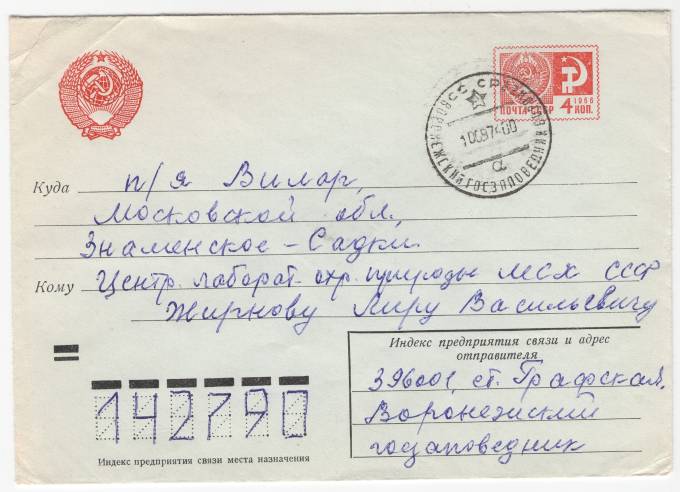 ПОЧТА СССР
1966
4 КОП.
СССР
ВОРОНЕЖСКИЙ ГОСЗАПОВЕДНИК
а
Куда п/я Вилар,
Московской обл.,
Знаменское – Садки.
Кому Центр. лаборат. охр. природы МСХ СССР
Жирнову Лиру Васильевичу
Индекс предприятия связи и адрес
отправителя
396001, ст. Графская,
Воронежский
госзаповедник
142790
Индекс предприятия связи места назначения